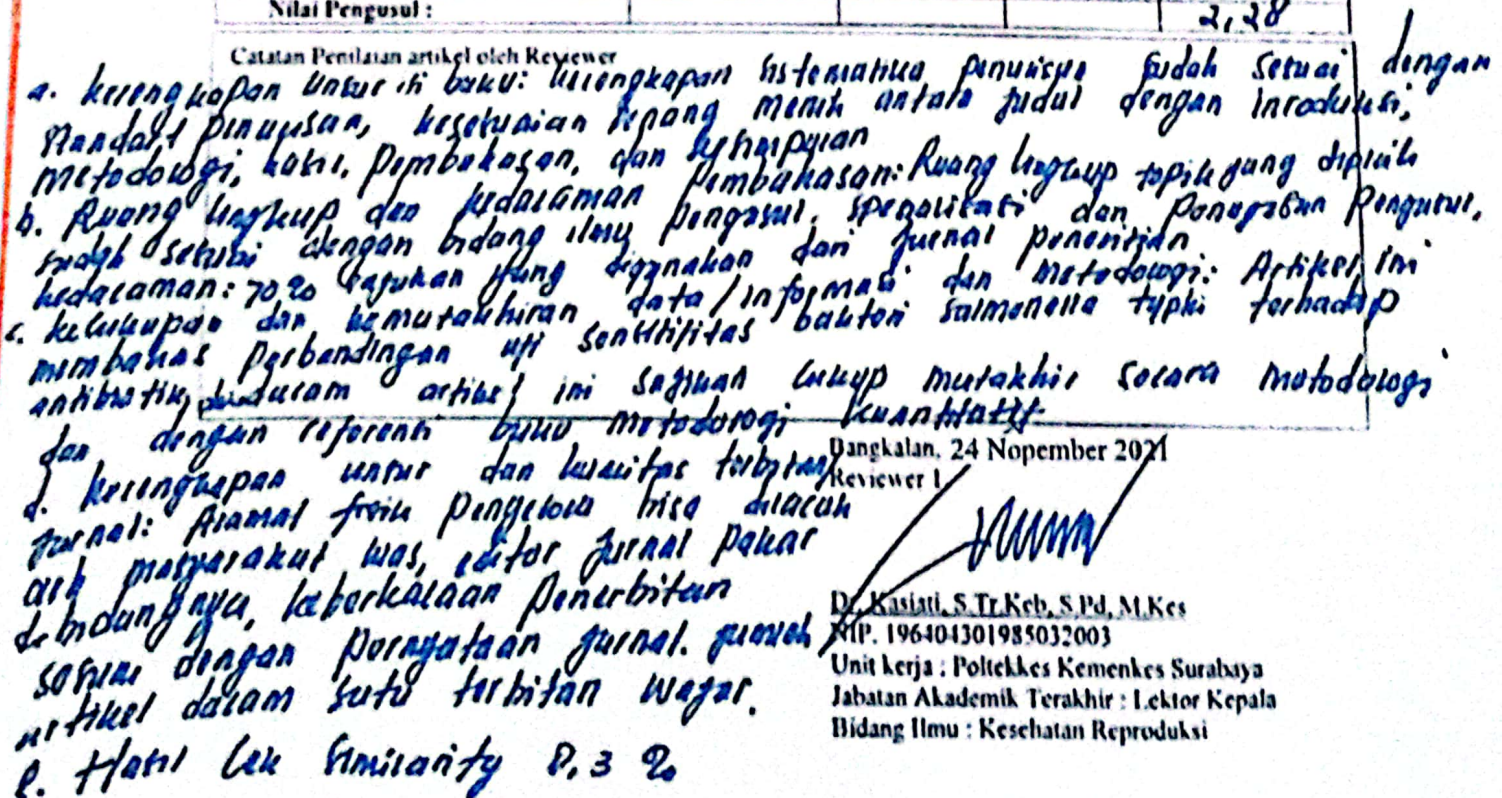 Nilai Pengusul :
2,28
Catatan Penilaian artikel oleh Reviewer
a. kelengkapan unsur isi buku: kelengkapan sistematika penulisan sudah sesuai dengan
standart penulisan, kesesuaian benang merah antara judul dengan introduksi,
metodologi, hasil, pembahasan, dan kesimpulan
b. Ruang lingkup dan kedalaman pembahasan: Ruang lingkup topik yang dipilih
sudah sesuai dengan bidang ilmu pengusul, spesialitasi dan penugasan pengusul,
kedalaman: 70% rujukan yang digunakan dari jurnal penelitian
c. kecukupan dan kemutakhiran data/informasi dan metodologi: Artikel ini
membahas perbandingan uji sensitifitas bakteri salmonella typhi terhadap
antibiotik, artikel ini sajikan cukup mutakhir secara metodologi
dan dengan referensi buku metodologi kuantitatif
d. kelengkapan unsur dan kualitas terbitan/
Jurnal: Alamat pengelola bisa dilacak
oleh masyarakat luas, editor jurnal pakar
dibidangnya, keberkalaan penerbitan
sesuai dengan pernyataan jurnal. jumlah
artikel dalam satu terbitan wajar.
e. Hasil Cek Similarity 8,3 %
Bangkalan, 24 Nopember 2021
Reviewer 1
Dr. Kasiati, S.Tr.Keb, S.Pd, M.Kes
NIP. 196404301985032003
Unit kerja : Poltekkes Kemenkes Surabaya
Jabatan Akademik Terakhir : Lektor Kepala
Bidang Ilmu : Kesehatan Reproduksi